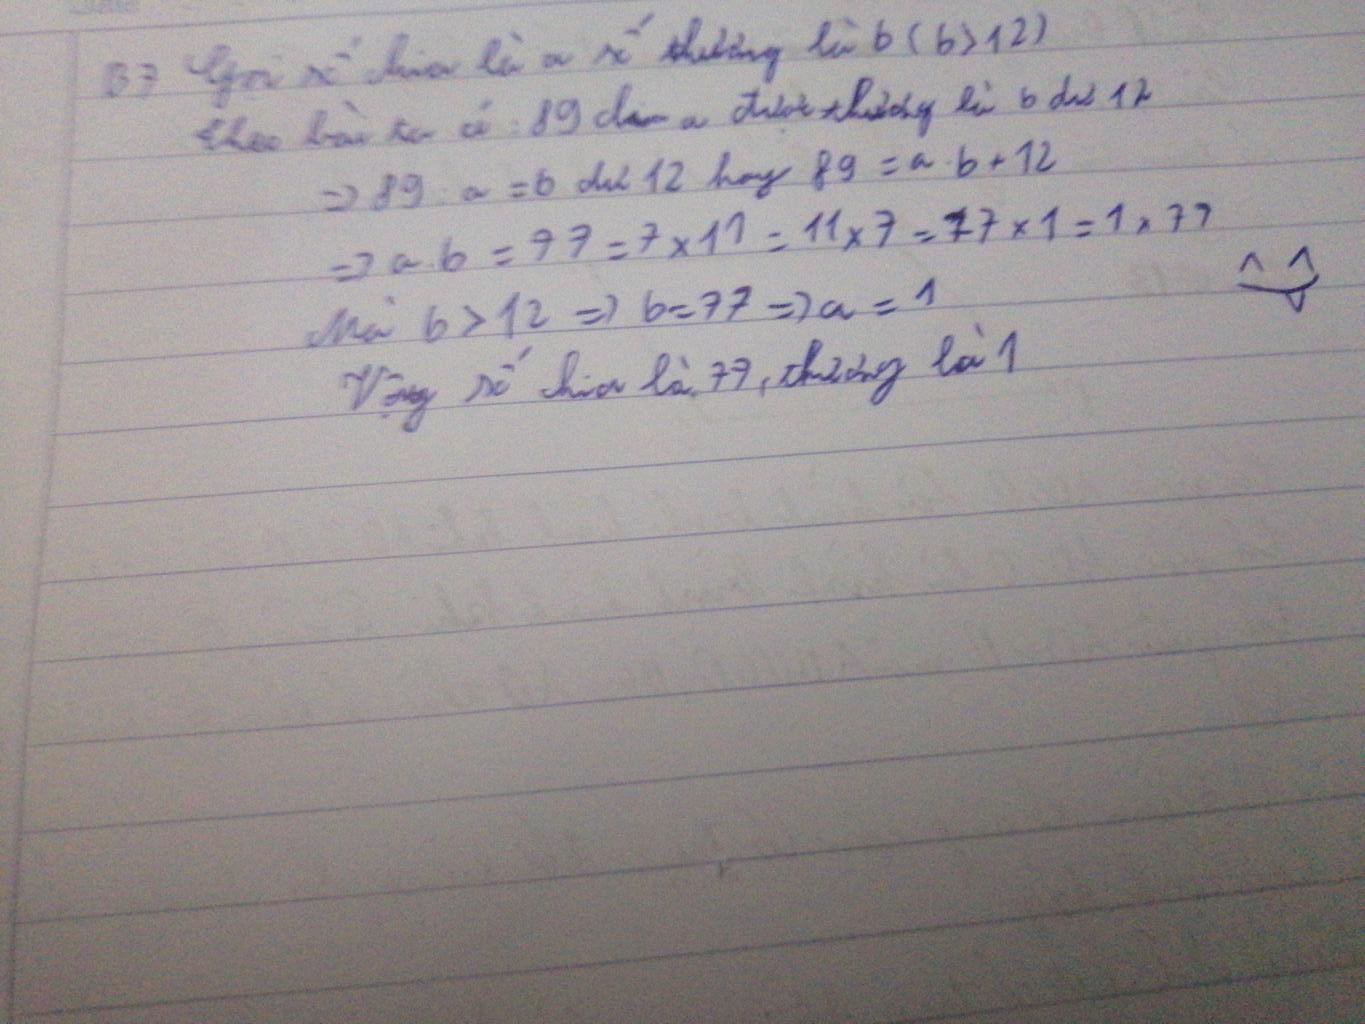 B7 Gọi số chia là a số thương là b (b>12)
theo bài ta có : 89 chia a được thương là b dư 12
=> 89 : a = b dư 12 hay 89 = a . b + 12
=> a.b = 77 = 7 x 11 = 11 x 7 = 77 x 1 = 1 x 77
Mà b > 12 => b = 77 => a = 1
Vậy số chia là 77, thương là 1